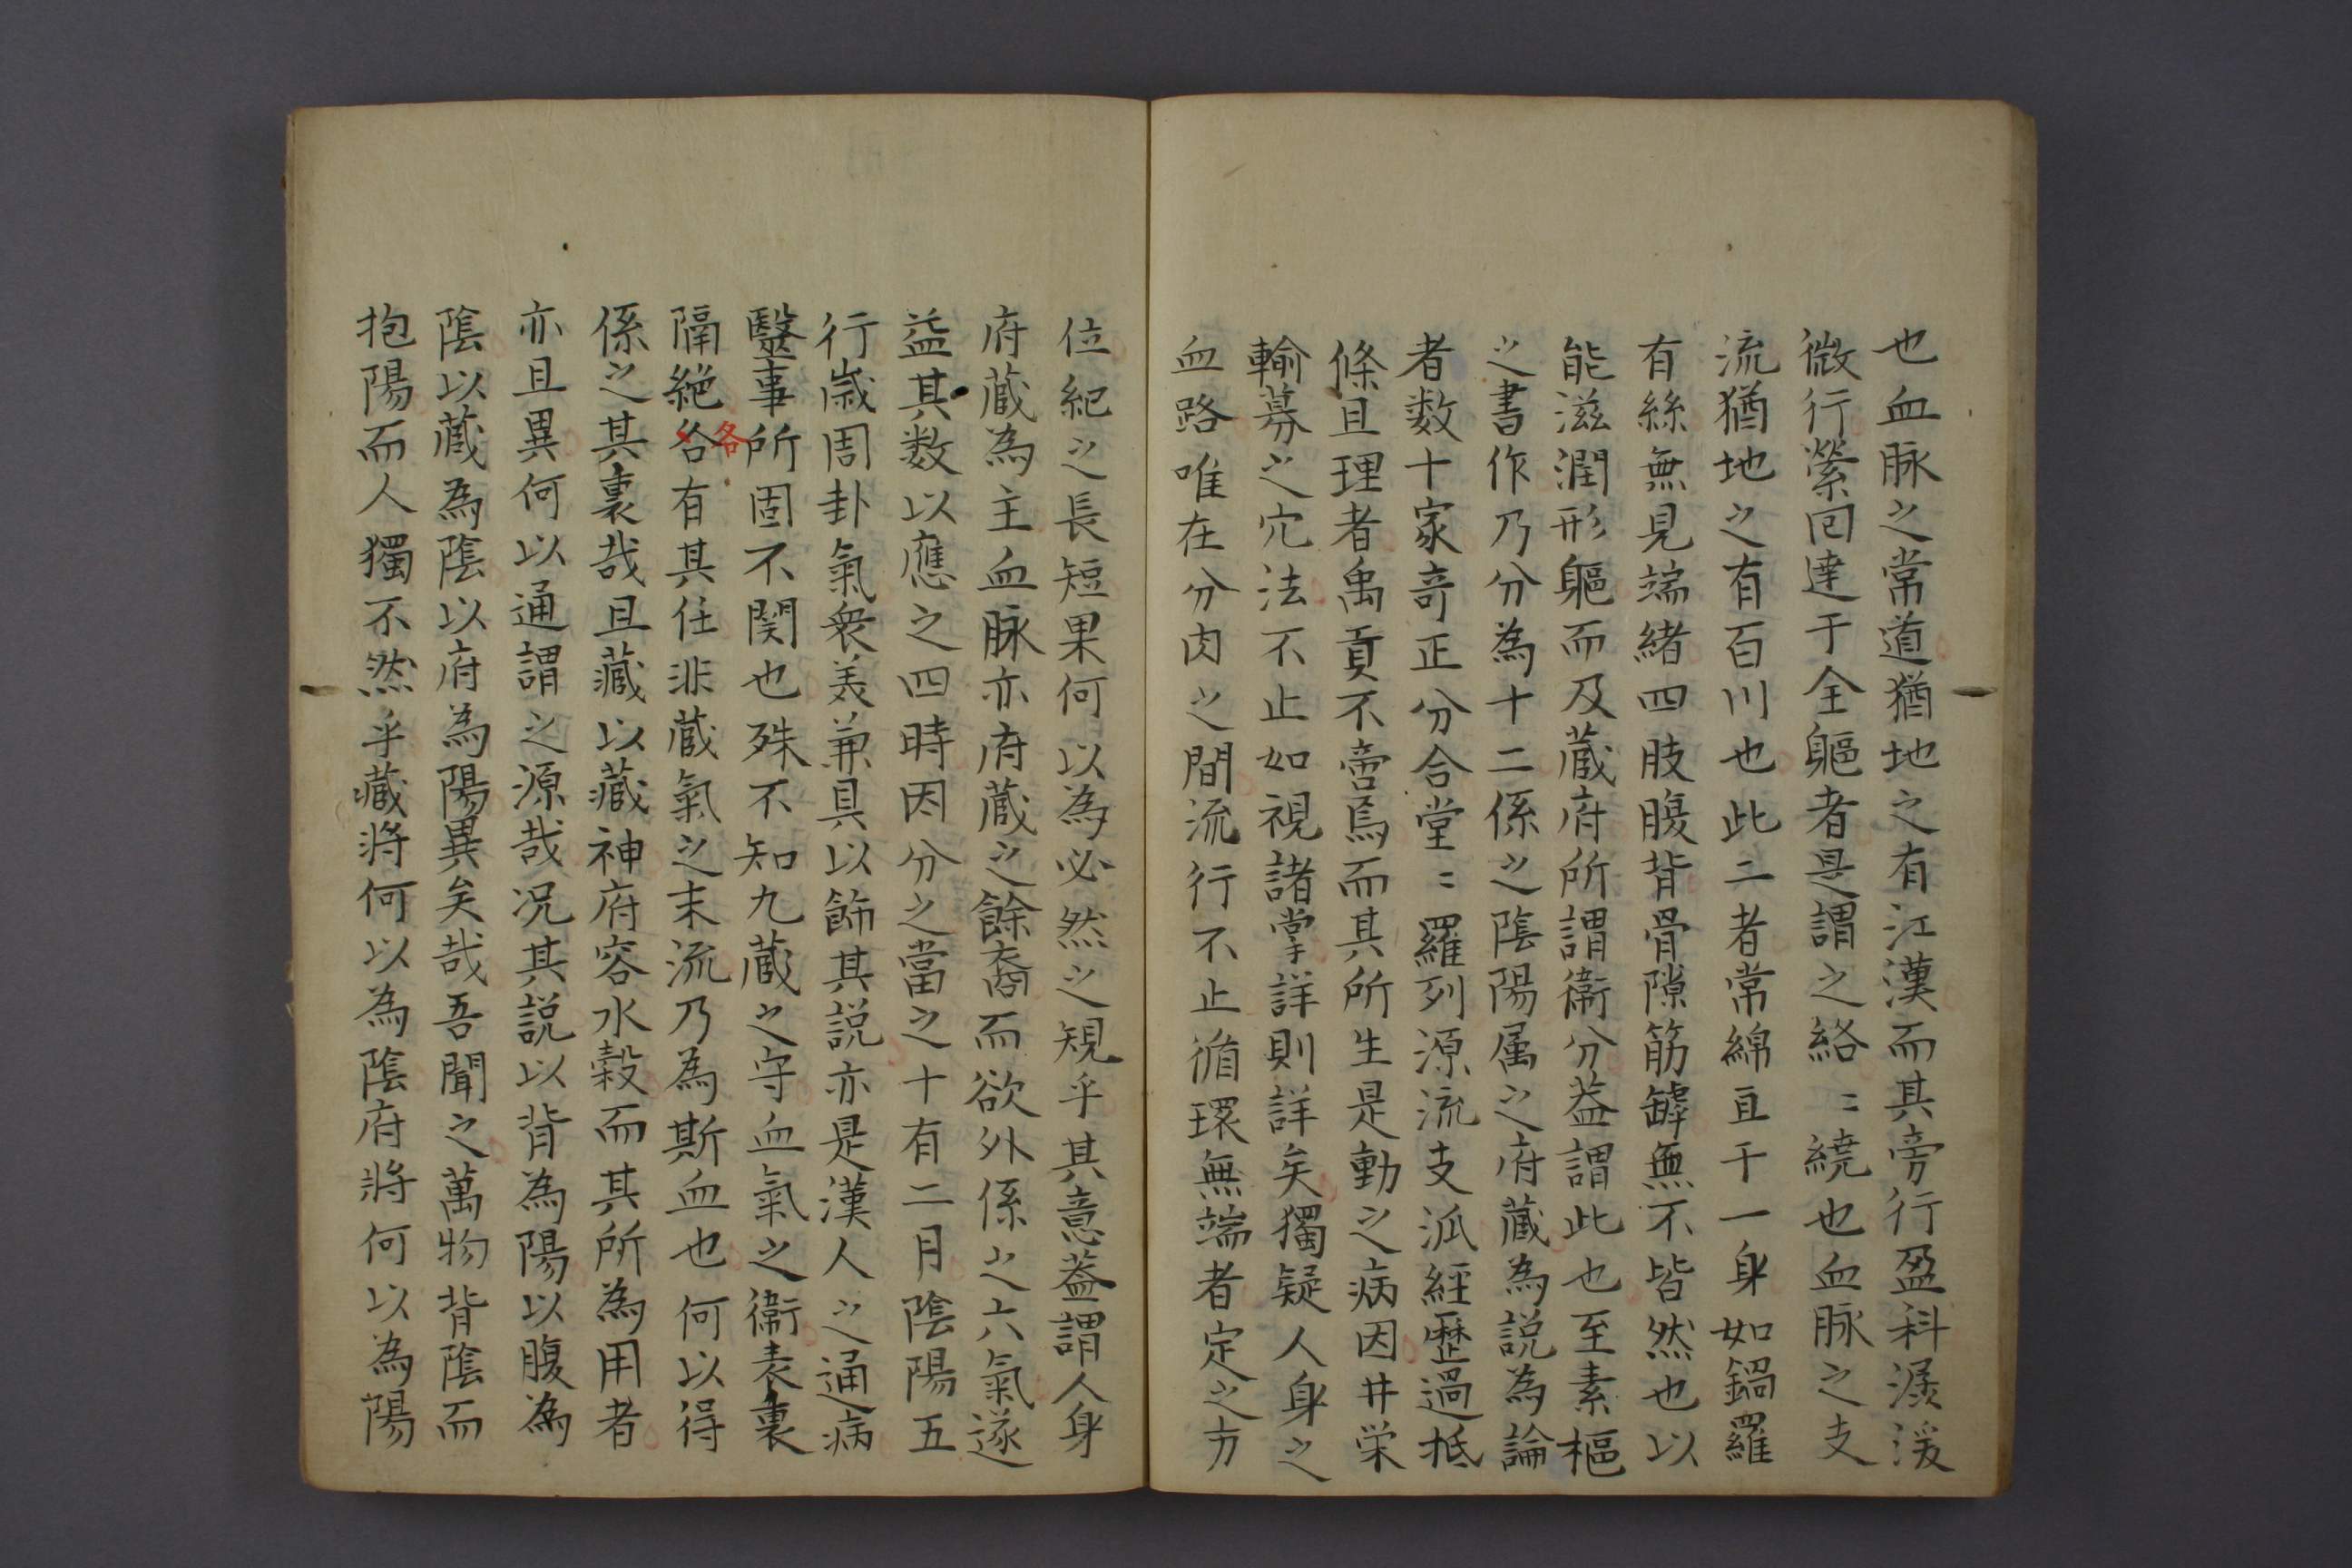 也血脉之常道猶地之有江漢而其旁行盈科濮湲
微行縈回達于全軀者是謂之絡〻繞也血脉之支
流猶地之有百川也此二者常綿亘于一身如鍋羅
有絲無見端緒四肢腹背骨隙筋罅無不皆然也以
能滋潤形軀而及蔵府所謂衞分益謂此也至素樞
之書作乃分為十二係之陰陽属之府蔵為説為論
者数十家奇正分合堂〻羅列源流支泒經歷過抵
條且理者禹貢不啻焉而其所生是動之病因井栄
輸募之穴法不止如視諸掌詳則詳矣獨疑人身之
血路唯在分肉之間流行不止循環無端者定之方
位紀之長短果何以為必然之規乎其意葢謂人身
府蔵為主血脉亦府蔵之餘裔而欲外係之六氣遂
益其数以應之四時因分之當之十有二月陰陽五
行歳周卦氣衆美兼具以飾其説亦是漢人之通病
醫事所固不関也殊不知九蔵之守血氣之衞表裏
隔絶各有其任非蔵氣之末流乃為斯血也何以得
係之其裏哉且藏以藏神府容水穀而其所為用者
亦且異何以通謂之源哉况其説以背為陽以腹為
陰以蔵為陰以府為陽異矣哉吾聞之萬物背陰而
抱陽而人獨不然乎藏將何以為陰府將何以為陽